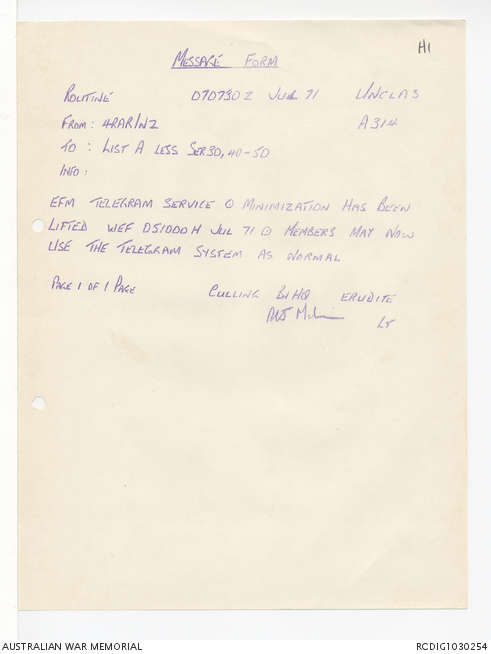 H1
MESSAGE FORM
ROUTINE 070730Z JUL 71 UNCLAS
FROM: 4RAR/NZ A314
TO : LIST A LESS SER 30, 40-50
INFO:
EFM TELEGRAM SERVICE ⊙ MINIMIZATION HAS BEEN
LIFTED WEF 051000H JUL 71 ⊙ MEMBERS MAY NOW
USE THE TELEGRAM SYSTEM AS NORMAL
PAGE 1 OF 1 PAGE CULLING BNHQ ERUDITE
LT
AUSTRALIAN WAR MEMORIAL RCDIG1030254